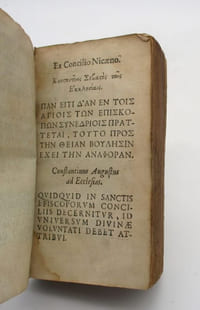 Ex Concilio Nicæno.
Κωνσταντῖνος Σεβαστὸς ταῖς
Ἐκκλησίαις.
ΠΑΝ ΕΙΤΙ Δ'ΑΝ ΕΝ ΤΟΙΣ
ΑΓΙΟΙΣ ΤΩΝ ΕΠΙΣΚΟ-
ΠΩΝ ΣΥΝΕΔΡΙΟΙΣ ΠΡΑΤ-
ΤΕΤΑΙ, ΤΟΥΤΟ ΠΡΟΣ
ΤΗΝ ΘΕΙΑΝ ΒΟΥΛΗΣΙΝ
ΕΧΕΙ ΤΗΝ ΑΝΑΦΟΡΑΝ.
Constantinus Augustus
ad Ecclesias.
QUIDQUID IN SANCTIS
EPISCOPORUM CONCI-
LIIS DECERNITUR, ID
UNIVERSUM DIVINÆ
VOLUNTATI DEBET AT-
TRIBUI.